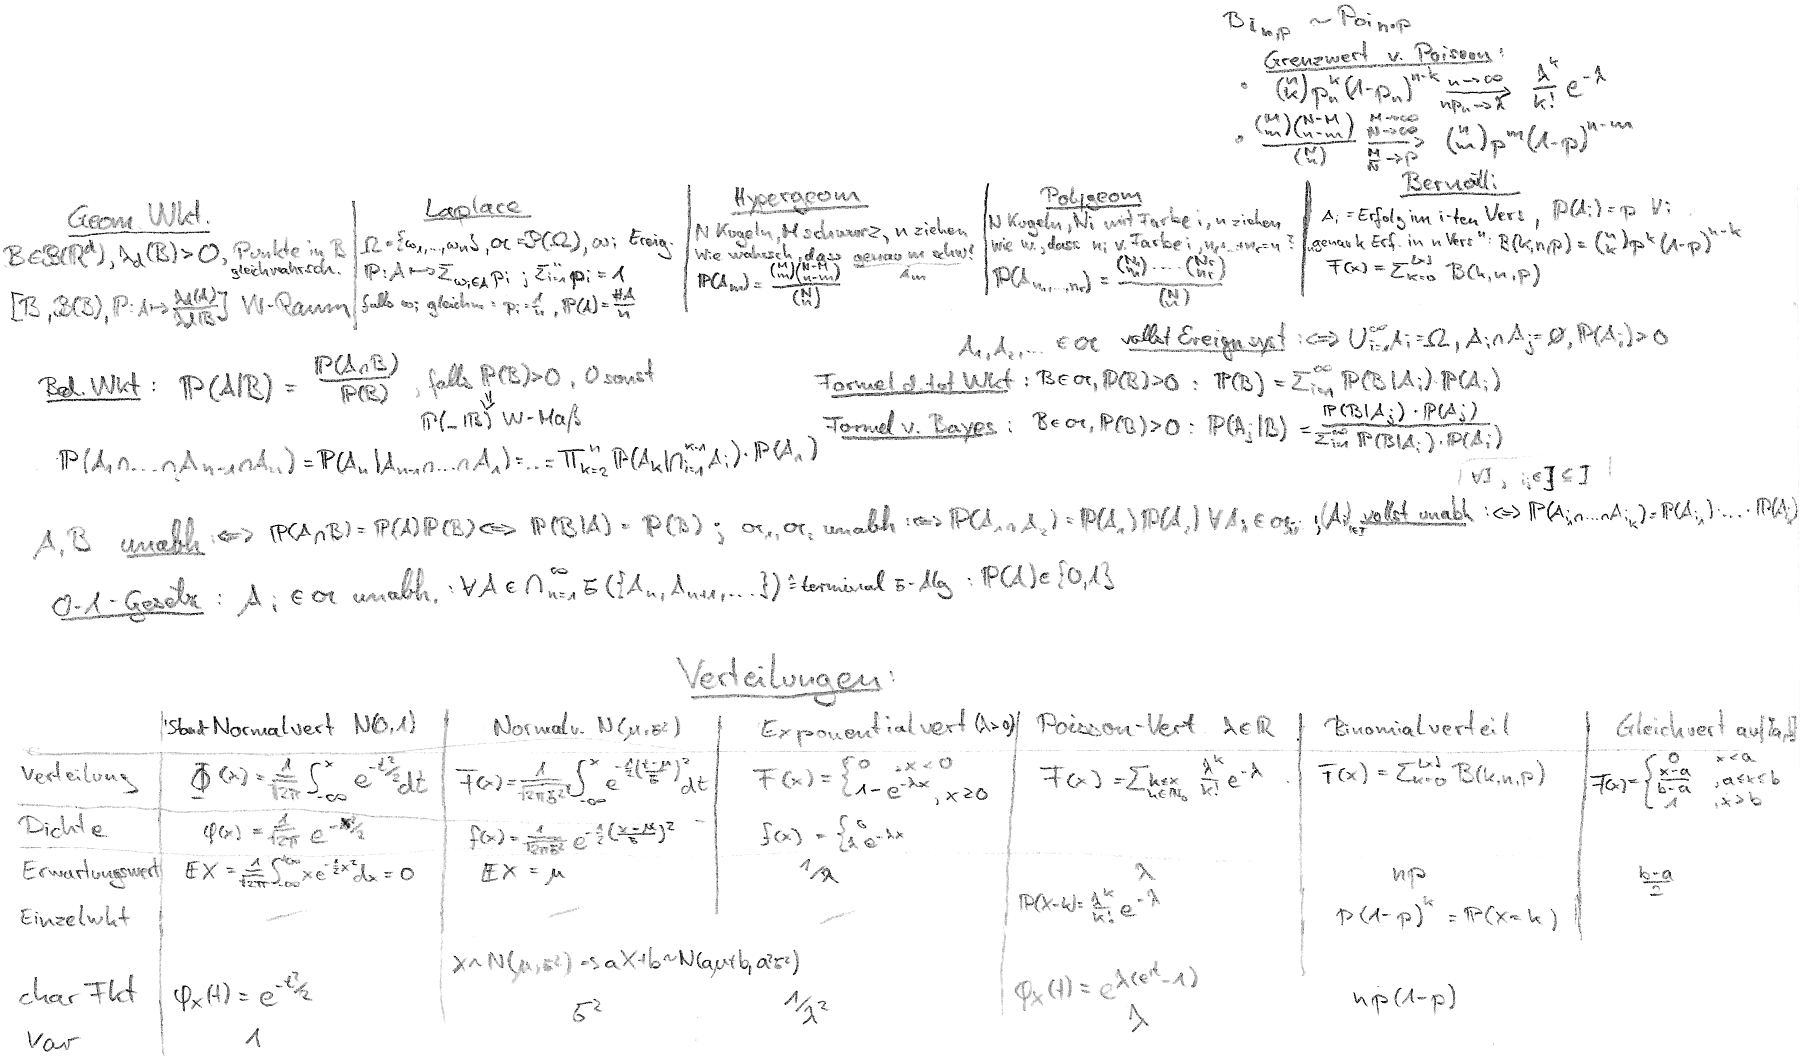 Bi_{n,p} ~ Poi_{n·p}
Grenzwert v. Poisson:
• (n k) p_n^k (1-p_n)^{n-k} n→∞ np_n→λ → λ^k/k! e^{-λ}
• (M m)(N-M n-m)/(N n) M→∞ N→∞ M/N→p → (n m) p^m (1-p)^{n-m}
Geom. Wkt.
B∈𝔅(ℝ^d), λ_d(B)>0, Punkte in B
gleichwahrsch.
[B, 𝔅(B), ℙ: A↦ λ_d(A)/λ_d(B)] W-Raum
Laplace
Ω={ω_1,...,ω_n}, 𝔞=𝒫(Ω), ω_i Ereig.
ℙ: A↦Σ_{ω_i∈A} p_i ; Σ_{i=1}^n p_i = 1
falls ω_i gleichw: p_i = 1/n, ℙ(A) = #A/n
Hypergeom
N Kugeln, M schwarz, n ziehen
Wie wahrsch, dass genau m schw?
A_m
ℙ(A_m) = (M m)(N-M n-m)/(N n)
Polygeom
N Kugeln, N_i mit Farbe i, n ziehen
wie w, dass n_i v. Farbe i, n_1+...+n_r=n?
ℙ(A_{n_1,...,n_r}) = (N_1 n_1)·...·(N_r n_r)/(N n)
Bernoulli
A_i = Erfolg im i-ten Vers, ℙ(A_i) = p ∀i
"genau k Erf. in n Vers": B(k,n,p) = (n k) p^k (1-p)^{n-k}
F(x) = Σ_{k=0}^{⌊x⌋} B(k,n,p)
A_1, A_2, ... ∈ 𝔞 vollst Ereignsyst :⇔ ∪_{i=1}^∞ A_i = Ω, A_i∩A_j=∅, ℙ(A_i)>0
Bed. Wkt: ℙ(A|B) = ℙ(A∩B)/ℙ(B), falls ℙ(B)>0, 0 sonst
⇓
ℙ(_|B) W-Maß
Formel d. tot Wkt: B∈𝔞, ℙ(B)>0: ℙ(B) = Σ_{i=1}^∞ ℙ(B|A_i)·ℙ(A_i)
Formel v. Bayes: B∈𝔞, ℙ(B)>0: ℙ(A_j|B) = ℙ(B|A_j)·ℙ(A_j)/Σ_{i=1}^∞ ℙ(B|A_i)·ℙ(A_i)
ℙ(A_1∩...∩A_{n-1}∩A_n) = ℙ(A_n|A_{n-1}∩...∩A_1) = ... = Π_{k=2}^n ℙ(A_k|∩_{i=1}^{k-1} A_i)·ℙ(A_1)
A,B unabh :⇔ ℙ(A∩B) = ℙ(A)ℙ(B) ⇔ ℙ(B|A) = ℙ(B); 𝔞_1, 𝔞_2 unabh :⇔ ℙ(A_1∩A_2) = ℙ(A_1)ℙ(A_2) ∀A_i∈𝔞_i; (A_i)_{i∈I} vollst unabh :⇔ ℙ(A_{i_1}∩...∩A_{i_k}) = ℙ(A_{i_1})·...·ℙ(A_{i_k})
0-1-Gesetz: A_i ∈ 𝔞 unabh. : ∀A ∈ ∩_{n=1}^∞ σ({A_n, A_{n+1}, ...}) ≙ terminal σ-Alg : ℙ(A)∈{0,1}
Verteilungen:
Stand Normalvert N(0,1) Normalv. N(μ,σ²) Exponentialvert (λ>0) Poisson-Vert λ∈ℝ Binomialverteil Gleichvert auf [a,b]
Verteilung Φ(x) = 1/√2π ∫_{-∞}^x e^{-t²/2} dt F(x) = 1/√2πσ² ∫_{-∞}^x e^{-½((t-μ)/σ)²} dt F(x) = {0 , x<0 1-e^{-λx}, x≥0 F(x) = Σ_{k≤x k∈ℕ_0} λ^k/k! e^{-λ} F(x) = Σ_{k=0}^{⌊x⌋} B(k,n,p) F(x) = {0 x<a (x-a)/(b-a) , a≤x≤b 1 , x>b
Dichte φ(x) = 1/√2π e^{-x²/2} f(x) = 1/√2πσ² e^{-½((x-μ)/σ)²} f(x) = {0 λe^{-λx}
Erwartungswert EX = 1/√2π ∫_{-∞}^{+∞} x e^{-½x²} dx = 0 EX = μ 1/λ λ np (b-a)/2
Einzelwkt — — — ℙ(X=k) = λ^k/k! e^{-λ} p(1-p)^k = ℙ(X=k)
X~N(μ,σ²) → aX+b~N(aμ+b, a²σ²)
char Fkt φ_X(t) = e^{-t²/2} φ_X(t) = e^{λ(e^{it}-1)}
Var 1 σ² 1/λ² λ np(1-p)